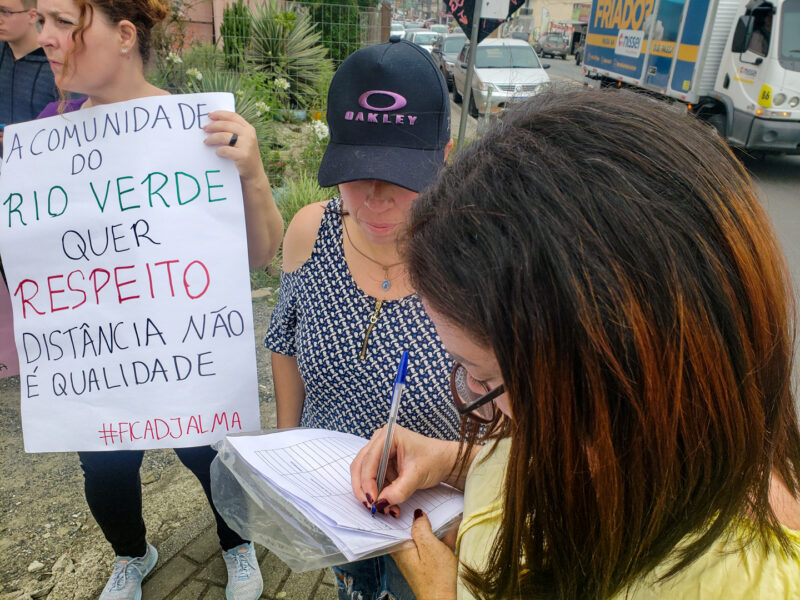 A COMUNIDADE
DO
RIO VERDE
QUER
RESPEITO
DISTÂNCIA NÃO
É QUALIDADE
#FICADJALMA
OAKLEY
FRIADO?
nissei